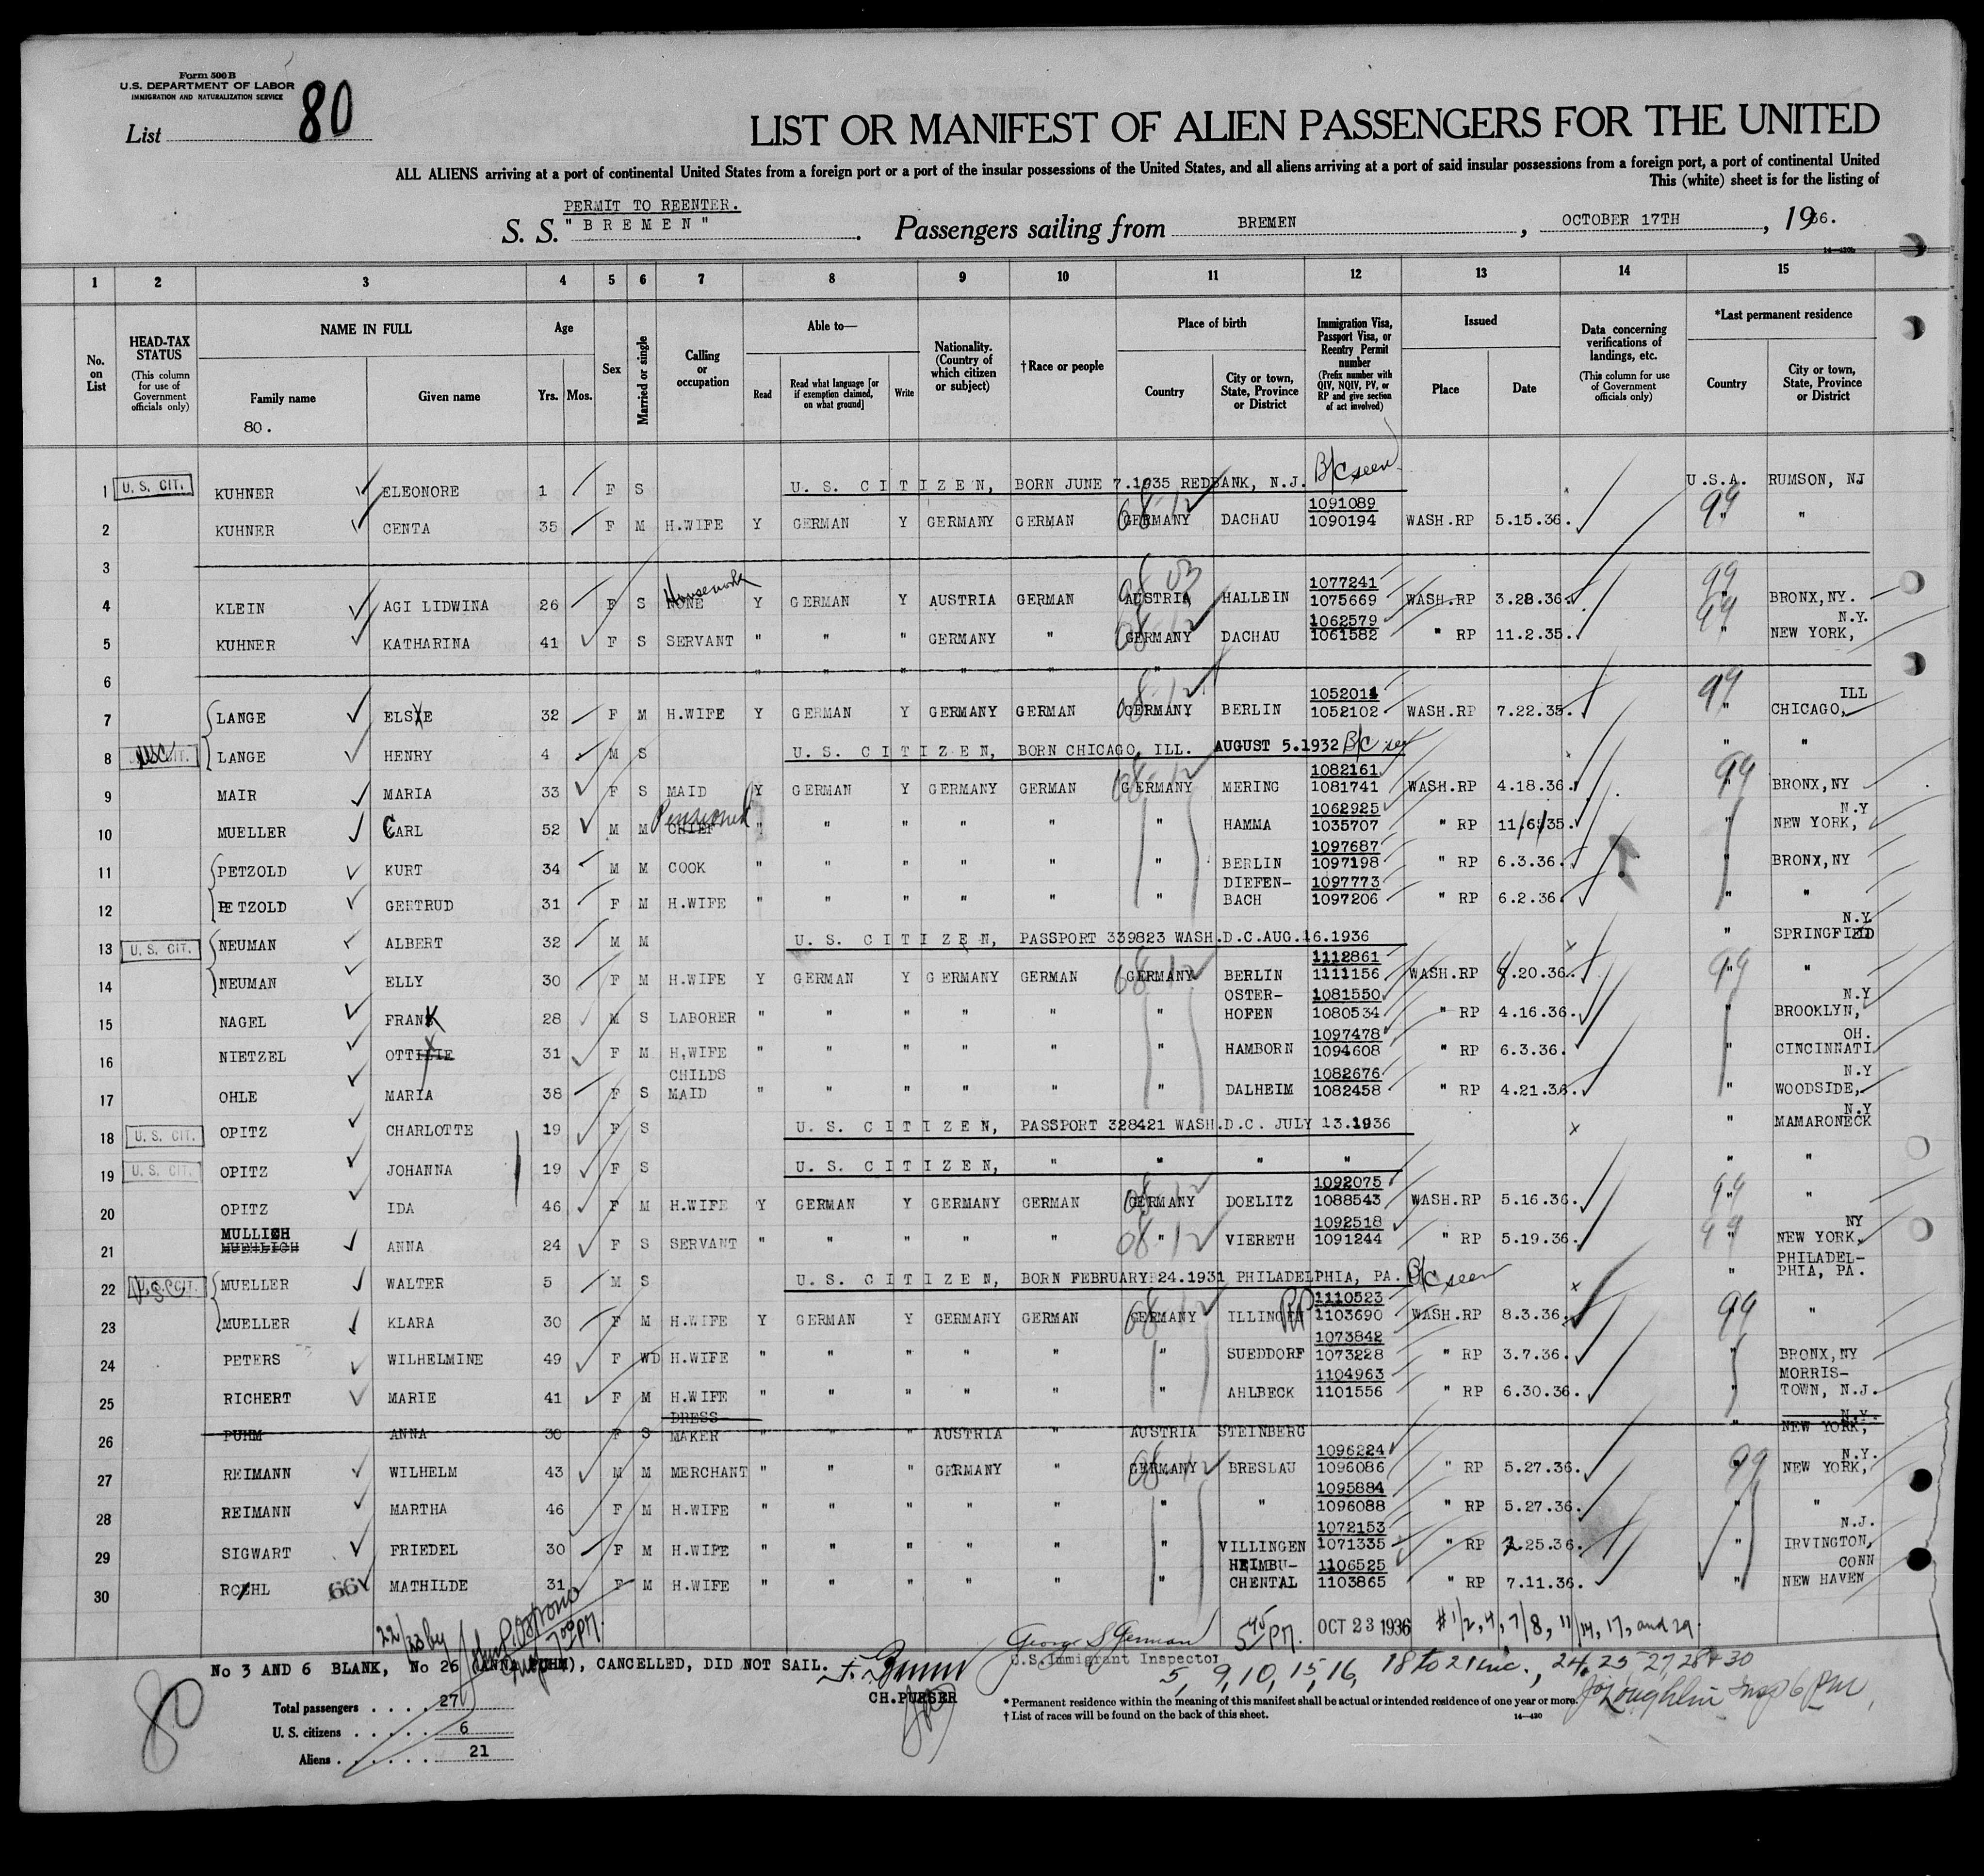 Form 500 B
U.S. DEPARTMENT OF LABOR
IMMIGRATION AND NATURALIZATION SERVICE
List 80
LIST OR MANIFEST OF ALIEN PASSENGERS FOR THE UNITED
ALL ALIENS arriving at a port of continental United States from a foreign port or a port of the insular possessions of the United States, and all aliens arriving at a port of said insular possessions from a foreign port, a port of continental United
This (white) sheet is for the listing of
PERMIT TO REENTER.
S. S. "BREMEN" Passengers sailing from BREMEN, OCTOBER 17TH, 1936.
1 2 3 4 5 6 7 8 9 10 11 12 13 14 15
No. on List
HEAD-TAX STATUS (This column for use of Government officials only)
NAME IN FULL Family name Given name
80.
Age Yrs. Mos.
Sex
Married or single
Calling or occupation
Able to— Read Read what language [or if exemption claimed, on what ground] Write
Nationality. (Country of which citizen or subject)
† Race or people
Place of birth Country City or town, State, Province or District
Immigration Visa, Passport Visa, or Reentry Permit number (Prefix number with QIV, NQIV, PV, or RP and give section of act involved)
Issued Place Date
Data concerning verifications of landings, etc. (This column for use of Government officials only)
*Last permanent residence Country City or town, State, Province or District
1 U. S. CIT. KUHNER ELEONORE 1 F S U. S. CITIZEN, BORN JUNE 7.1935 REDBANK, N.J. B/C seen U.S.A. RUMSON, NJ
2 KUHNER CENTA 35 F M H.WIFE Y GERMAN Y GERMANY GERMAN GERMANY DACHAU 1091089 1090194 WASH.RP 5.15.36. 99 " "
3
4 KLEIN AGI LIDWINA 26 F S NONE Housework Y GERMAN Y AUSTRIA GERMAN AUSTRIA HALLEIN 1077241 1075669 WASH.RP 3.28.36. 99 BRONX,NY.
5 KUHNER KATHARINA 41 F S SERVANT " " " GERMANY " GERMANY DACHAU 1062579 1061582 " RP 11.2.35. 99 N.Y. NEW YORK,
6 " " " " "
7 LANGE ELSIE 32 F M H.WIFE Y GERMAN Y GERMANY GERMAN GERMANY BERLIN 1052014 1052102 WASH.RP 7.22.35. 99 " ILL CHICAGO,
8 USC LANGE HENRY 4 M S U. S. CITIZEN, BORN CHICAGO, ILL. AUGUST 5.1932 B/C " "
9 MAIR MARIA 33 F S MAID Y GERMAN Y GERMANY GERMAN GERMANY MERING 1082161 1081741 WASH.RP 4.18.36. 99 BRONX,NY
10 MUELLER CARL 52 M M CHIEF Pensioned " " " " " " HAMMA 1062925 1035707 " RP 11/6/35. " N.Y NEW YORK,
11 PETZOLD KURT 34 M M COOK " " " " " " BERLIN 1097687 1097198 " RP 6.3.36. " BRONX,NY
12 PETZOLD GERTRUD 31 F M H.WIFE " " " " " " DIEFEN- BACH 1097773 1097206 " RP 6.2.36. " "
13 U. S. CIT. NEUMAN ALBERT 32 M M U. S. CITIZEN, PASSPORT 339823 WASH.D.C.AUG.16.1936 " N.Y SPRINGFIELD
14 NEUMAN ELLY 30 F M H.WIFE Y GERMAN Y GERMANY GERMAN GERMANY BERLIN 1112861 1111156 WASH.RP 8.20.36. 99 " "
15 NAGEL FRANK 28 M S LABORER " " " " " " OSTER- HOFEN 1081550 1080534 " RP 4.16.36. " N.Y BROOKLYN,
16 NIETZEL OTTILIE 31 F M H,WIFE " " " " " " HAMBORN 1097478 1094608 " RP 6.3.36. " OH. CINCINNATI
17 OHLE MARIA 38 F S CHILDS MAID " " " " " " DALHEIM 1082676 1082458 " RP 4.21.36. " N.Y WOODSIDE,
18 U. S. CIT. OPITZ CHARLOTTE 19 F S U. S. CITIZEN, PASSPORT 328421 WASH.D.C. JULY 13.1936 " N.Y MAMARONECK
19 U. S. CIT. OPITZ JOHANNA 19 F S U. S. CITIZEN, " " " " " "
20 OPITZ IDA 46 F M H.WIFE Y GERMAN Y GERMANY GERMAN GERMANY DOELITZ 1092075 1088543 WASH.RP 5.16.36. 99 " "
21 MULLICH MUEHLICH ANNA 24 F S SERVANT " " " " " " VIERETH 1092518 1091244 " RP 5.19.36. 99 " NY NEW YORK,
22 U.S. CIT. MUELLER WALTER 5 M S U. S. CITIZEN, BORN FEBRUARY 24.1931 PHILADELPHIA, PA. B/C seen " PHILADEL- PHIA, PA.
23 MUELLER KLARA 30 F M H.WIFE Y GERMAN Y GERMANY GERMAN GERMANY ILLINGEN RP 1110523 1103690 WASH.RP 8.3.36. 99 "
24 PETERS WILHELMINE 49 F WD H.WIFE " " " " " " SUEDDORF 1073842 1073228 " RP 3.7.36. " BRONX,NY
25 RICHERT MARIE 41 F M H.WIFE " " " " " " AHLBECK 1104963 1101556 " RP 6.30.36. " MORRIS- TOWN, N.J.
26 PUHM ANNA 30 F S DRESS MAKER " " " AUSTRIA " AUSTRIA STEINBERG " N.Y. NEW YORK,
27 REIMANN WILHELM 43 M M MERCHANT " " " GERMANY " GERMANY BRESLAU 1096224 1096086 " RP 5.27.36. 99 N.Y. NEW YORK,
28 REIMANN MARTHA 46 F M H.WIFE " " " " " " " 1095884 1096088 " RP 5.27.36. " "
29 SIGWART FRIEDEL 30 F M H.WIFE " " " " " " VILLINGEN 1072153 1071335 " RP 2.25.36. " N.J. IRVINGTON,
30 ROEHL 66 MATHILDE 31 F M H.WIFE " " " " " " HEIMBU- CHENTAL 1106525 1103865 " RP 7.11.36. " CONN NEW HAVEN
22/23 by 7 00 PM.
George S German 5 45 PM. OCT 23 1936 # 1/2, 4, 7/8, 11/14, 17, and 29.
U.S. Immigrant Inspector
5, 9, 10, 15, 16, 18 to 21 inc., 24, 25 27, 28 + 30
No 3 AND 6 BLANK, No 26 (ANNA PUHM), CANCELLED, DID NOT SAIL.
CH.PURSER
80
Total passengers . . . . 27
U. S. citizens . . . . . 6
Aliens . . . . . . 21
* Permanent residence within the meaning of this manifest shall be actual or intended residence of one year or more.
† List of races will be found on the back of this sheet.
14—430
O'Loughlin Insp 6 PM